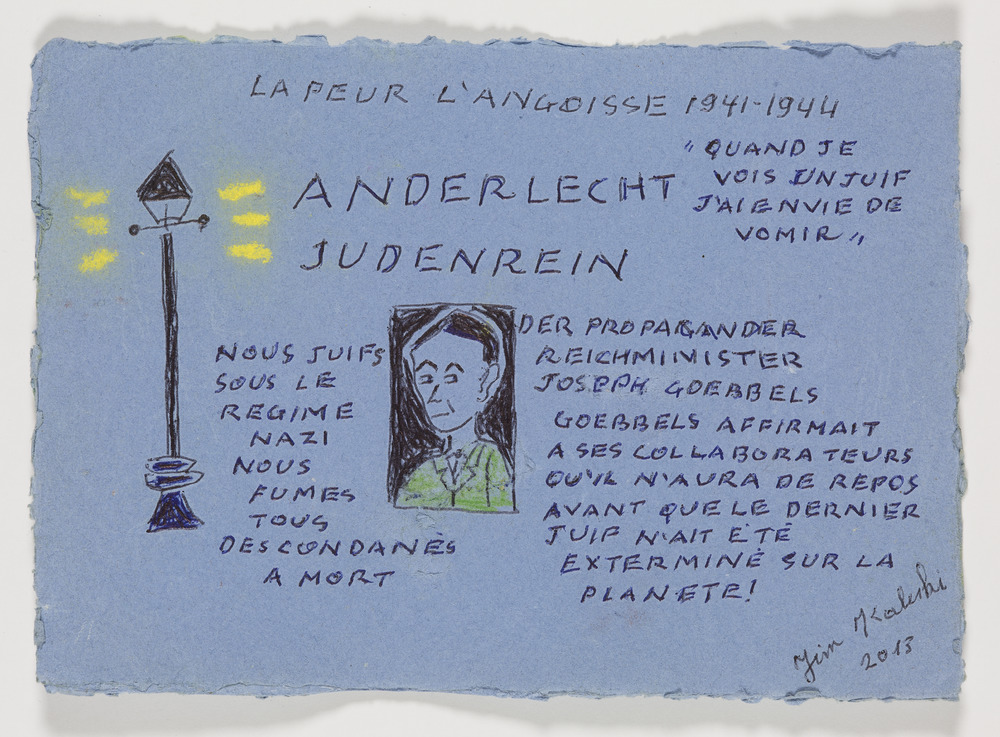 LA PEUR L'ANGOISSE 1941-1944
"QUAND JE
VOIS UN JUIF
J'AI ENVIE DE
VOMIR"
ANDERLECHT
JUDENREIN
NOUS JUIFS
SOUS LE
REGIME
NAZI
NOUS
FUMES
TOUS
DES CONDANÉS
A MORT
DER PROPAGANDER
REICHMINISTER
JOSEPH GOEBBELS
GOEBBELS AFFIRMAIT
A SES COLLABORATEURS
QU'IL N'AURA DE REPOS
AVANT QUE LE DERNIER
JUIF N'AIT ETÉ
EXTERMINÉ SUR LA
PLANETE!
2013